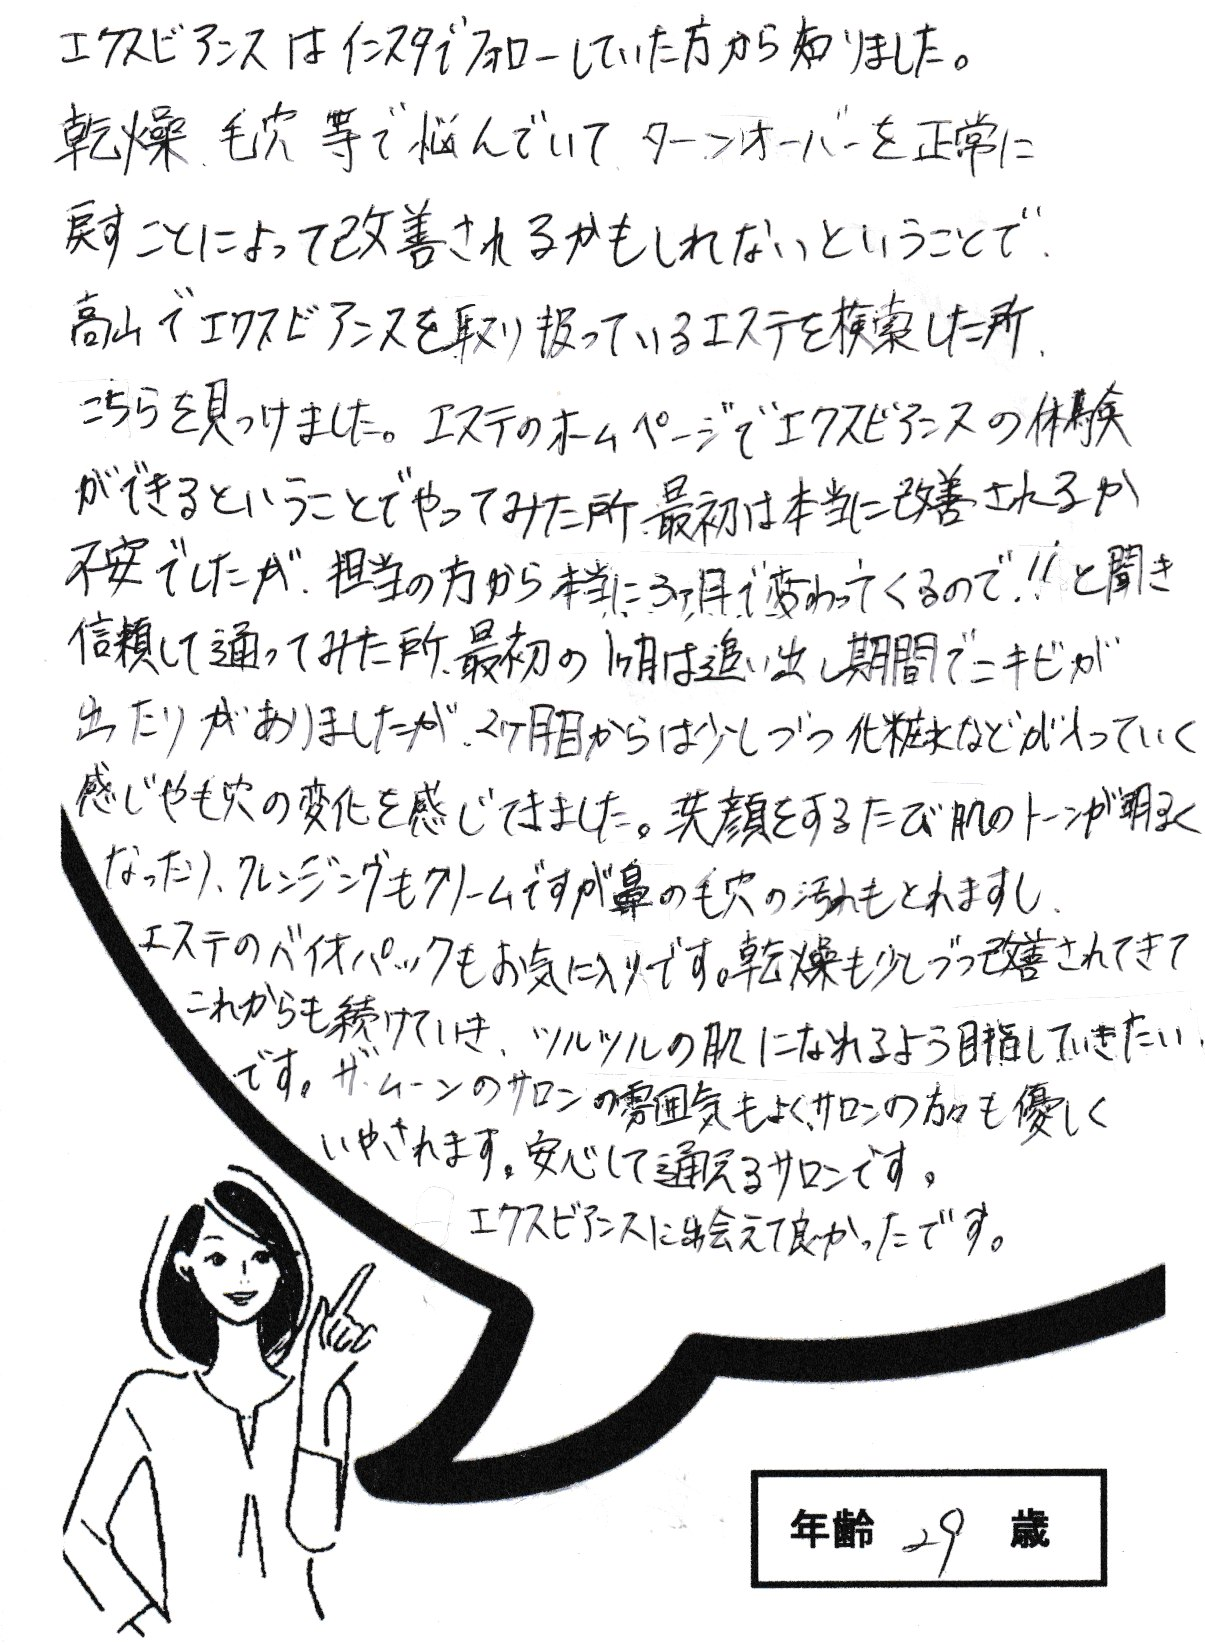 エクスビアンスはインスタでフォローしていた方から知りました。
乾燥、毛穴 等で悩んでいて、ターンオーバーを正常に
戻すことによって改善されるかもしれないということで、
高山でエクスビアンスを取り扱っているエステを検索した所、
こちらを見つけました。エステのホームページでエクスビアンスの体験
ができるということでやってみた所、最初は本当に改善されるか
不安でしたが、担当の方から本当に3ヶ月で変わってくるので!!と聞き
信頼して通ってみた所、最初の1ヶ月は追い出し期間でニキビが
出たりがありましたが、2ヶ月目からは少しづつ化粧水などが入っていく
感じや毛穴の変化を感じてきました。洗顔をするたび肌のトーンが明るく
なったり、クレンジングもクリームですが鼻の毛穴の汚れもとれますし、
エステのバイオパックもお気に入りです。乾燥も少しづつ改善されてきて
これからも続けていき、ツルツルの肌になれるよう目指していきたい
です。ザ・ムーンのサロンの雰囲気もよく、サロンの方々も優しく
いやされます。安心して通えるサロンです。
エクスビアンスに出会えて良かったです。
年齢 29 歳